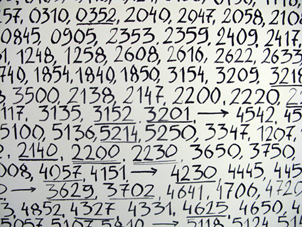 57, 0310, 0352, 2040, 2047, 2058, 210
0845, 0905, 2353, 2359, 2409, 2417,
1, 1248, 1258, 2608, 2616, 2622, 2633
740, 1854, 1840, 1850, 3154, 3205, 321
, 3500, 2138, 2147, 2200, 2220, 2
117, 3135, 3152, 3201, → 4542, 45
5100, 5136, 5214, 5250, 3347, 1207,
, 2140, 2200, 2230, 3650, 3750,
008, 4057, 4151 → 4230, 4445, 445
→ 3629, 3702, 4641, 4706, 472
3, 4852, 4327, 4331, 4625, 4650, 4
5057, 5107, 5810 → 5118, 5124, 51